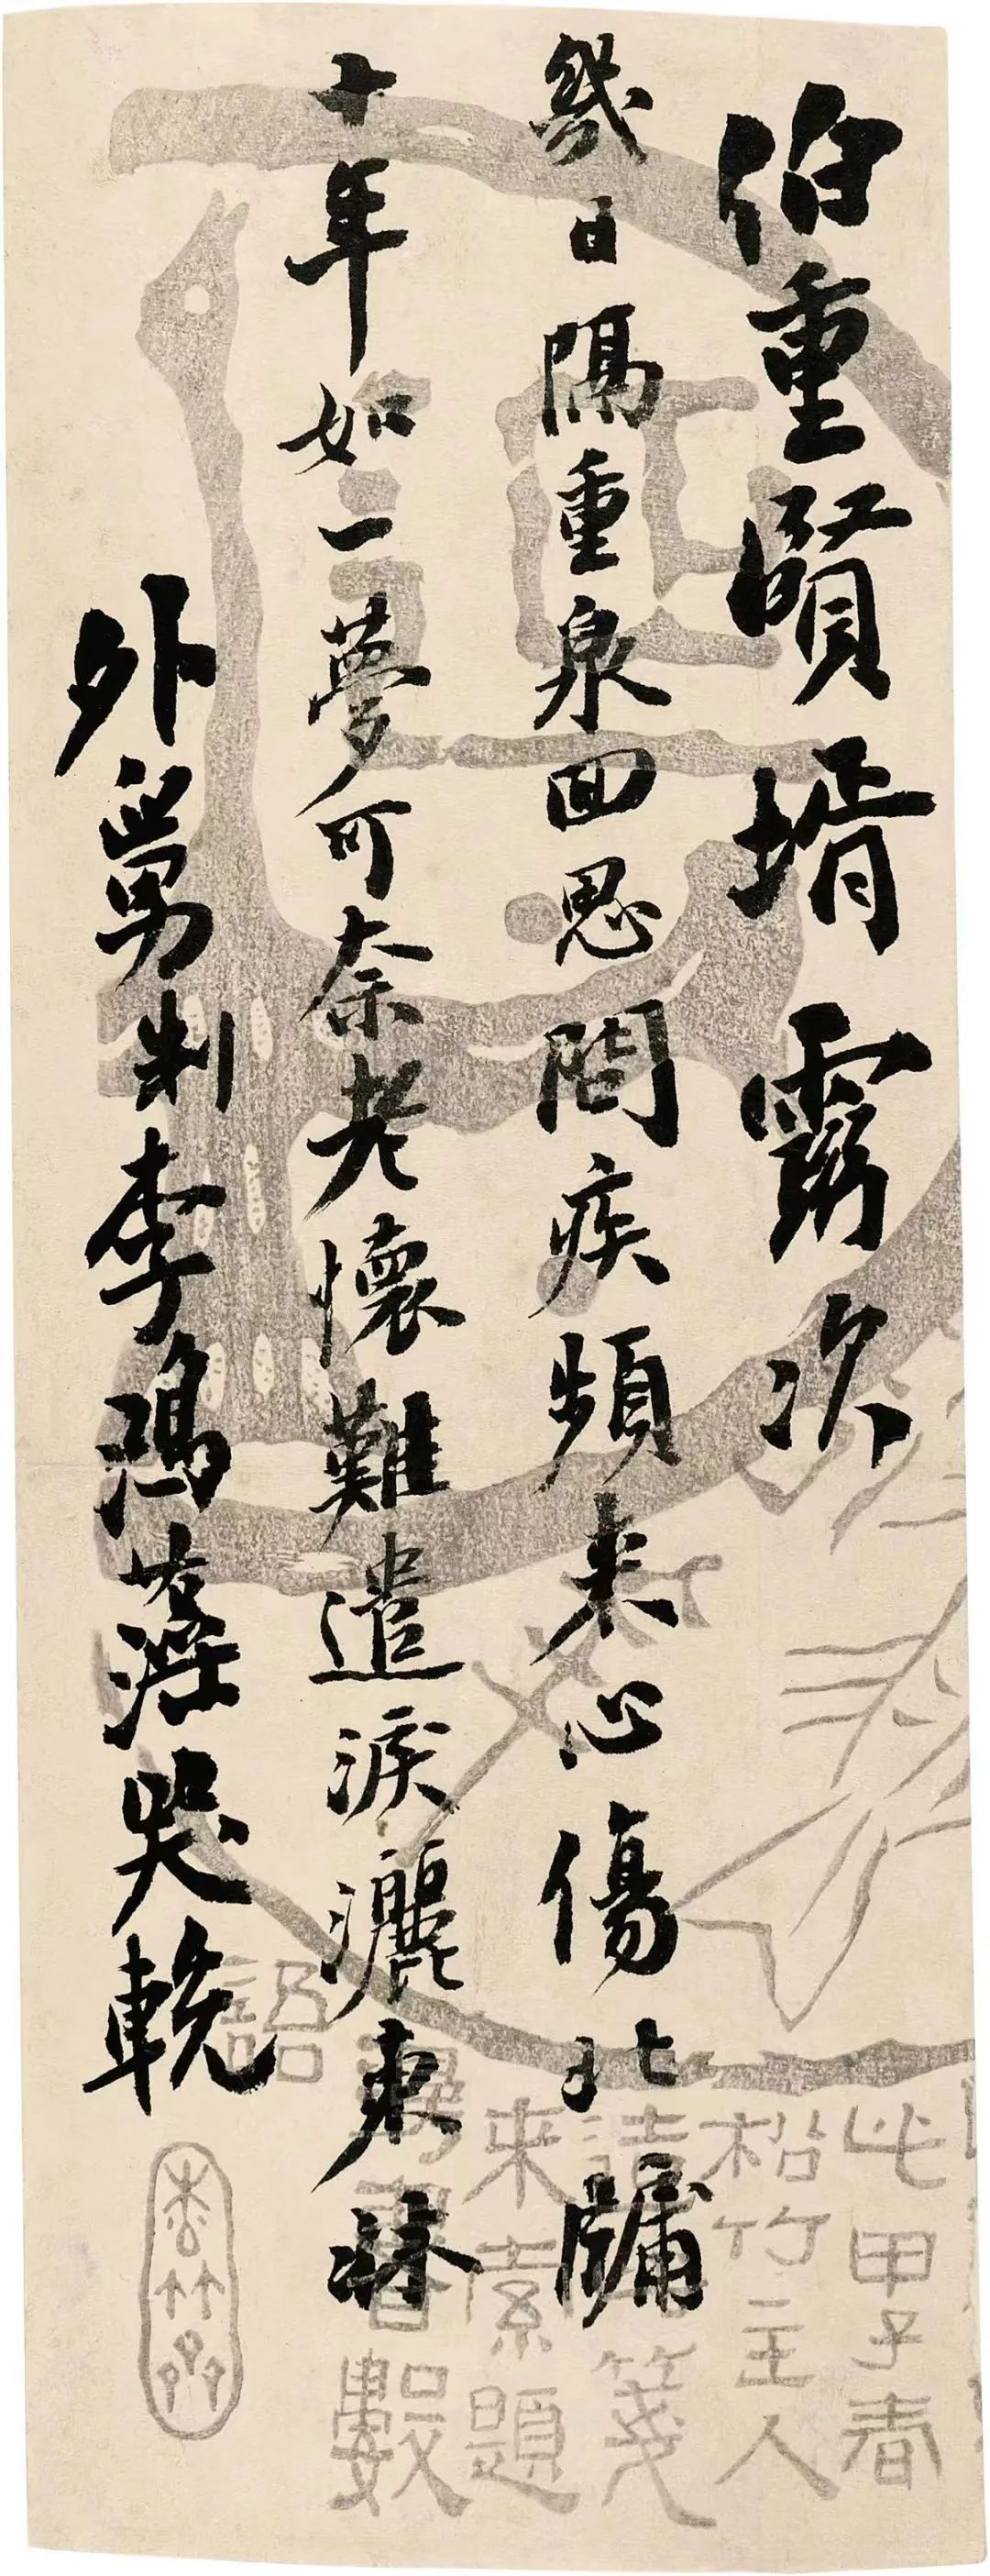 伯重賢壻靈次
幾日隔重泉回思問疾頻来心傷北牖
十年如一夢可奈老懷難遣淚灑東牀
外舅制李鴻藻哭輓
此甲子春
松竹主人
箋
来索題
書數
語